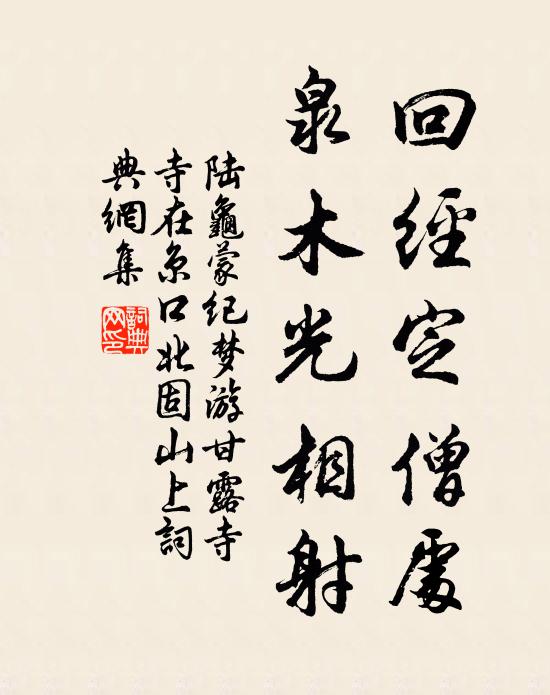 回經定僧處
泉木光相射
陆龜蒙纪梦游甘露寺
寺在京口北固山上詞
典網集
詞典
网印